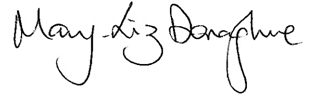 Mary-Liz Donaghue